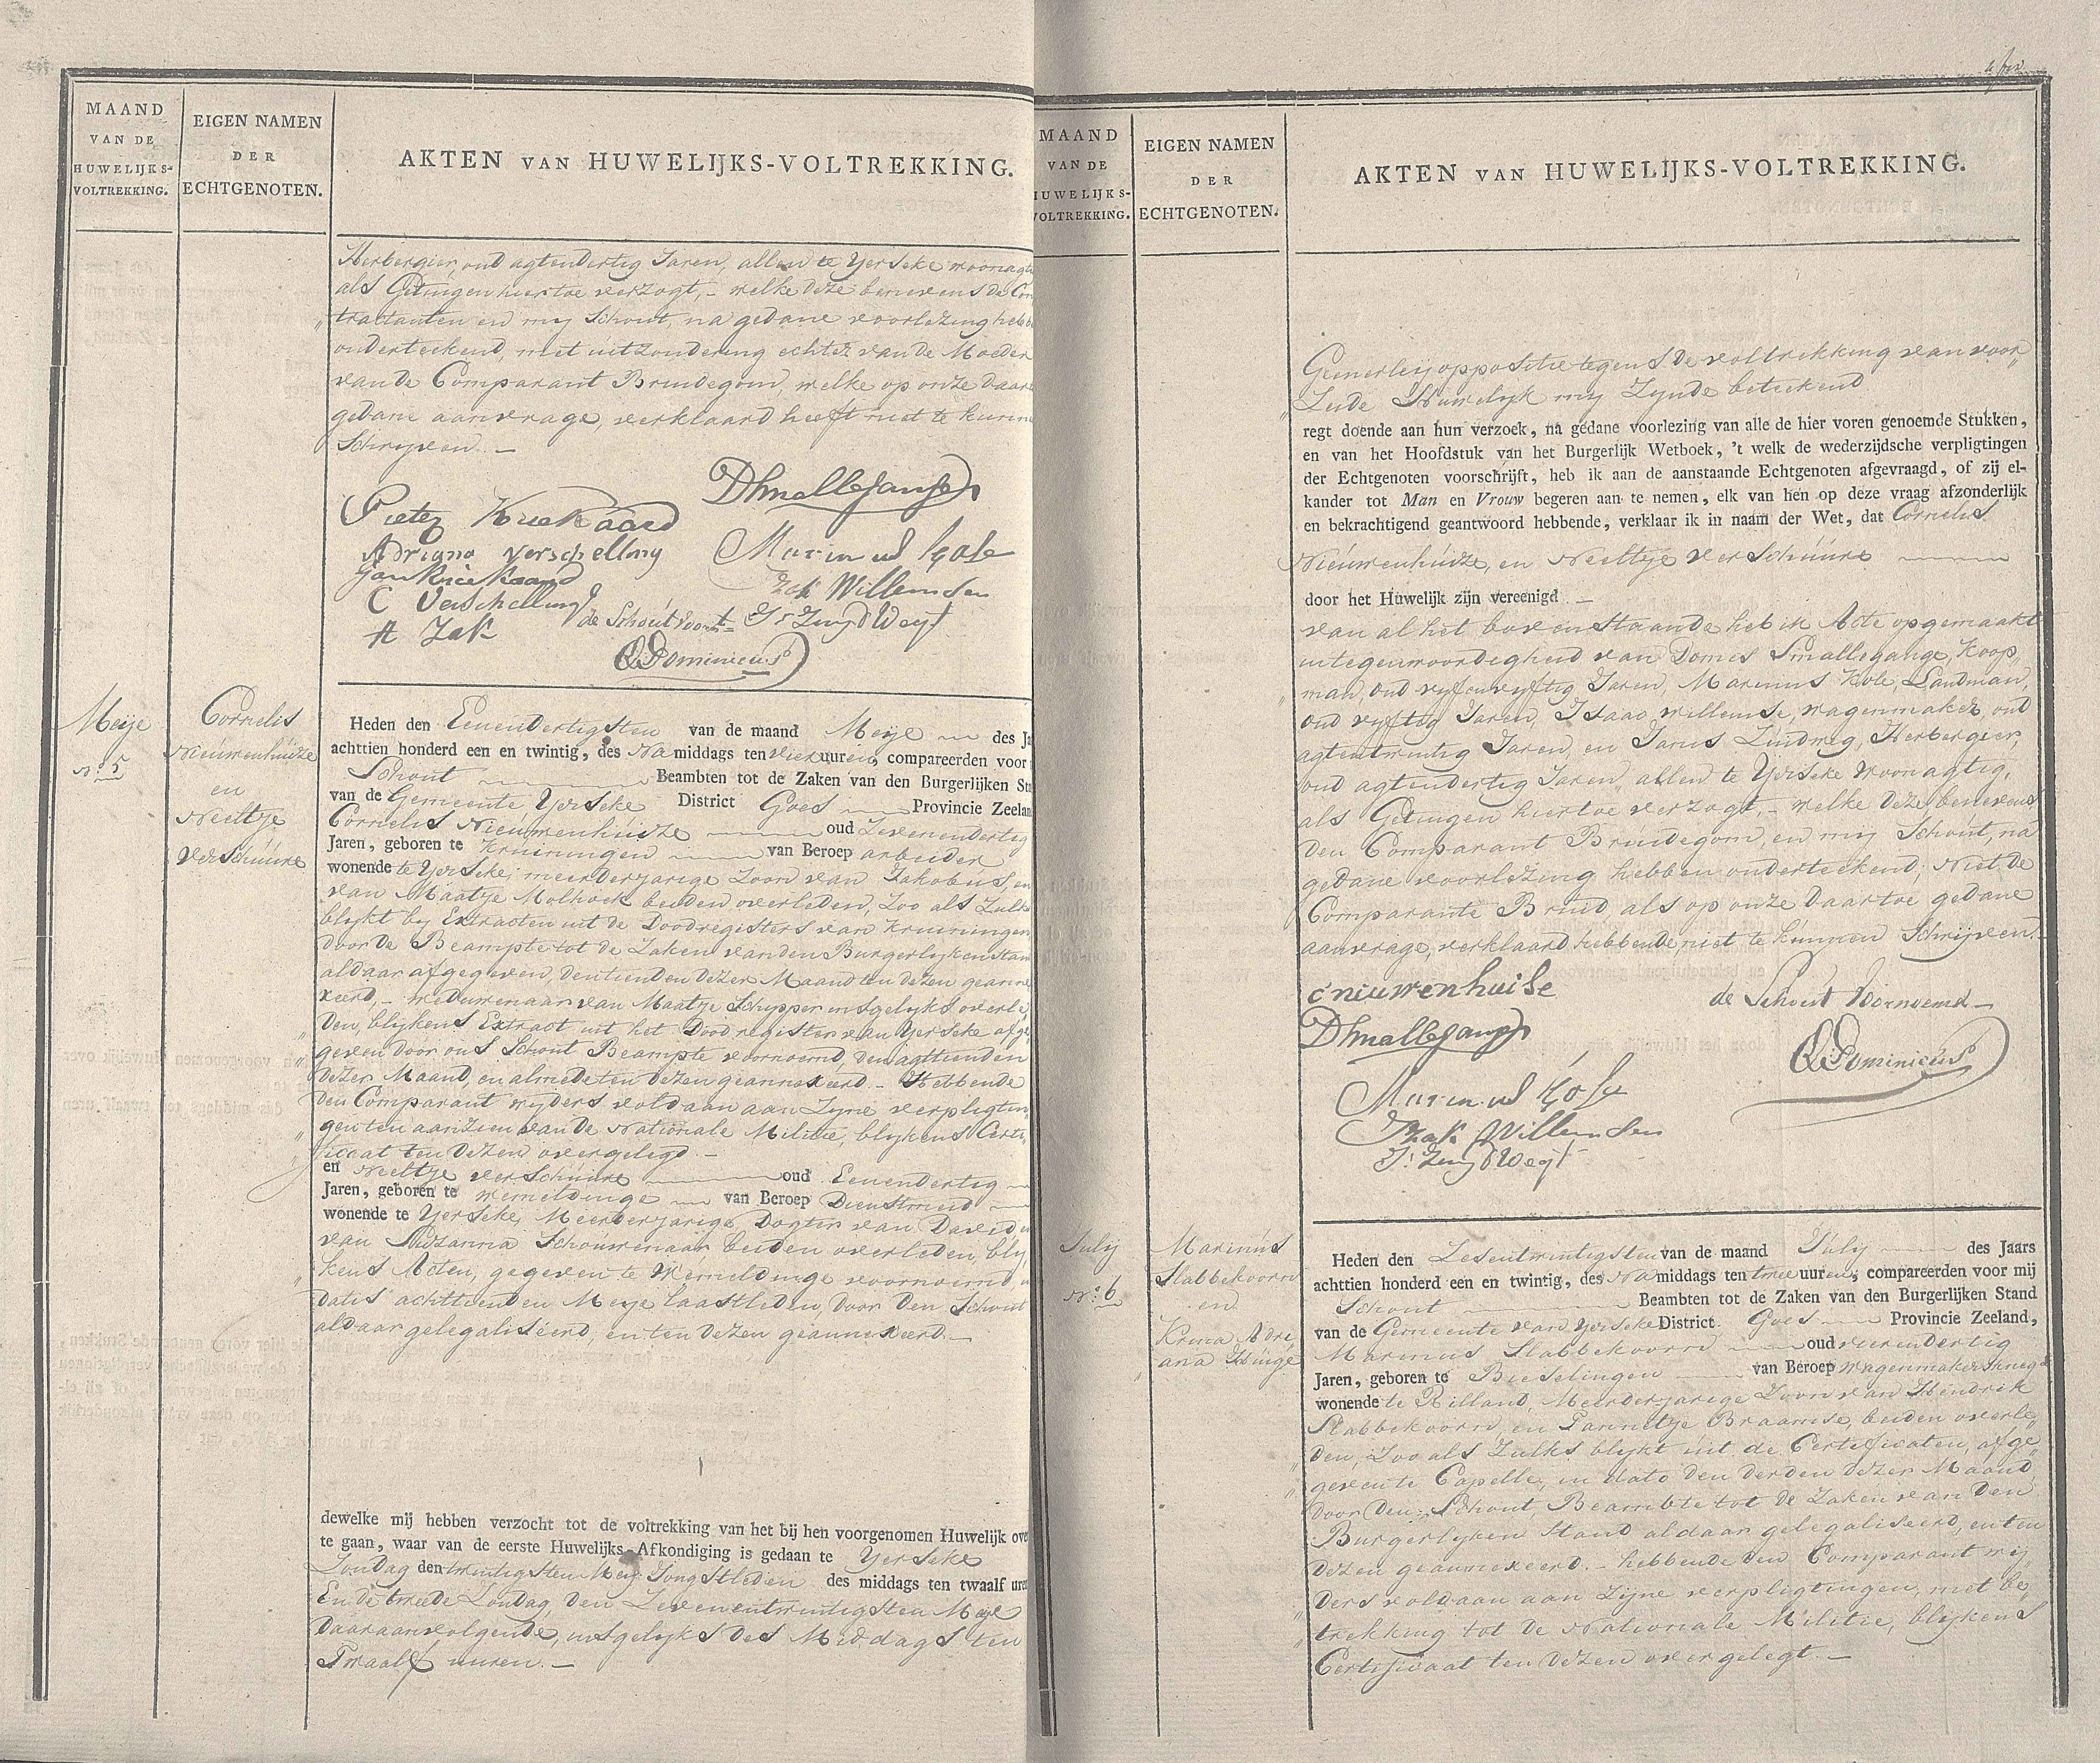 MAAND
VAN DE
HUWELIJKS-
VOLTREKKING.
EIGEN NAMEN
DER
ECHTGENOTEN.
AKTEN VAN HUWELIJKS-VOLTREKKING.
Herbergier, oud agtendertig Jaren, allen te Yerseke woonagt
als Getuigen hiertoe verzogt, – welke deze benevens de Con
„tractanten en my Schout, na gedane voorlezing hebb
onderteekend, met uitzondering echter van de Moeder
van de Comparant Bruidegom, welke op onze daar
gedane aanvrage, verklaard heeft niet te kunn
Schryven. –
Pieter Kriekaard
DSmallegange
Adriana Verschelling
Marinus Kole
Jan Kriekaard
Izak Willemsen
C Verschelling
de Schout voornt
Js Zuydweg
A Zak
Dominicus
Meije
No 5
Cornelis
Nieuwenhuize
en
Neeltje
verSchuure
Heden den Eenendertigsten van de maand Meye des Ja
achttien honderd een en twintig, des Na middags ten vier uuren, compareerden voor
Schout Beambten tot de Zaken van den Burgerlijken Sta
van de Gemeente Yerseke District Goes Provincie Zeelan
Cornelis Nieuwenhuize oud Zevenendertig
Jaren, geboren te Kruiningen van Beroep arbeider
wonende te Yerseke, meerderjarige Zoon van Jakobus, en
van Maatje Molhoek beiden overleden, Zoo als Zulk
blykt by Extracten uit de Doodregisters van Kruiningen
door de Beampte tot de Zaken van den Burgerlyken Stan
aldaar afgegeven, den tienden dezer Maand ten dezen geanne
xeerd, – weduwenaar van Maatje Schipper insgelyks overle
„den, blykens Extract uit het Doodregister van Yerseke afge
„geven door ons Schout Beampte voornoemd, den agttienden
dezer Maand, en almede ten dezen geannexeerd. – Hebbende
den Comparant wyders voldaan aan Zyne verpligtin
„gen ten aanzien van de Nationale Militie, blykens Certi
„ficaat ten dezen overgelegd. –
en Neeltje verSchuure oud Eenendertig
Jaren, geboren te Wemeldinge van Beroep Dienstmeid
wonende te Yerseke, Meerderjarige Dogter van David en
van Suzanna Schouwenaar beiden overleden, bly
„kens Acten, gegeven te Wemeldinge voornoemd, in
datis achttienden Meye laastleden, door den Schout
aldaar gelegaliseerd, en ten dezen geannexeerd. –
dewelke mij hebben verzocht tot de voltrekking van het bij hen voorgenomen Huwelijk ove
te gaan, waar van de eerste Huwelijks-Afkondiging is gedaan te Yerseke
Zondag den twintigsten Mey Jongstleden des middags ten twaalf uren
En de tweede Zondag, den Zevenentwintigsten Meye
daaraanvolgende, insgelyks des Middags ten
Twaalf uuren. –
MAAND
VAN DE
HUWELIJKS-
VOLTREKKING.
EIGEN NAMEN
DER
ECHTGENOTEN.
AKTEN VAN HUWELIJKS-VOLTREKKING.
Geenerley oppositie tegens de voltrekking van voor
„Zeide Huwelyk my Zynde beteekend
regt doende aan hun verzoek, na gedane voorlezing van alle de hier voren genoemde Stukken,
en van het Hoofdstuk van het Burgerlijk Wetboek, 't welk de wederzijdsche verpligtingen
der Echtgenoten voorschrijft, heb ik aan de aanstaande Echtgenoten afgevraagd, of zij el-
kander tot Man en Vrouw begeren aan te nemen, elk van hen op deze vraag afzonderlijk
en bekrachtigend geantwoord hebbende, verklaar ik in naam der Wet, dat Cornelis
Nieuwenhuize, en Neeltje verSchuure
door het Huwelijk zijn vereenigd. –
van al het bovenstaande heb ik Acte opgemaakt
in tegenwoordigheid van Domes Smallegange, Koop
„man, oud vyfenvyftig Jaren, Marinus Kole, Landman,
oud vyftig Jaren, Isaac Willemse, wagenmaker, oud
agtentwintig Jaren, en Janus Zuidweg, Herbergier,
oud agtendertig Jaren, allen te Yerseke woonagtig,
als Getuigen hiertoe verzogt, – welke deze benevens
den Comparant Bruidegom, en my Schout, na
gedane voorlezing hebben onderteekend, Niet de
Comparante Bruid, als op onze daartoe gedane
aanvrage, verklaard hebbende, niet te kunnen Schrijven.
C nieuwenhuise
de Schout Voornoemd
DSmallegange
Dominicus
Marinus Kole
Izak Willemsen
Js Zuydweg
July
No 6
Marinus
Slabbekoorn
en
Adri
„ana
Heden den Zesentwintigsten van de maand July des Jaars
achttien honderd een en twintig, des Na middags ten twee uuren, compareerden voor mij
Schout Beambten tot de Zaken van den Burgerlijken Stand
van de Gemeente van Yerseke District Goes Provincie Zeeland,
Marinus Slabbekoorn oud vierendertig
Jaren, geboren te Bieselingen van Beroep Wagenmakersknegt
wonende te Rilland, Meerderjarige Zoon van Hendrik
Slabbekoorn, en Pannetje Braamse, beiden overle
„den, Zoo als Zulks blykt uit de Certificaten, afge
„geven te Capelle, in dato den derden dezer Maand,
door den Schout, Beambte tot de Zaken van den
Burgerlyken Stand aldaar gelegaliseerd, en ten
dezen geannexeerd. – hebbende den Comparant wy
„ders voldaan aan Zyne verpligtingen, met be
„trekking tot de Nationale Militie, blykens
Certificaat ten dezen overgelegt. –